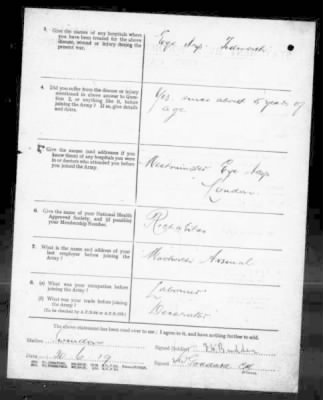 3. Give the names of any hospitals where
you have been treated for the above
disease, wound or injury during the
present war.
Eye Hosp. Tidworth
4. Did you suffer from the disease or injury
mentioned in above answer to Ques-
tion 2, or anything like it, before
joining the Army? If so, give details
and dates.
Yes since about 5 years of
age
5. Give the names (and addresses if you
know them) of any hospitals you were
in or doctors who attended you before
you joined the Army.
Westminster Eye Hosp
London
6. Give the name of your National Health
Approved Society, and (if possible)
your Membership Number.
7. What is the name and address of your
last employer before joining the
Army?
Arsenal
8. (a) What was your occupation before
joining the Army?
Labourer
(b) What was your trade before joining
the Army?
Decorator
The above statement has been read over to me; I agree to it, and have nothing further to add.
Station
Signed (Soldier)
Date 20.6.19
Signed